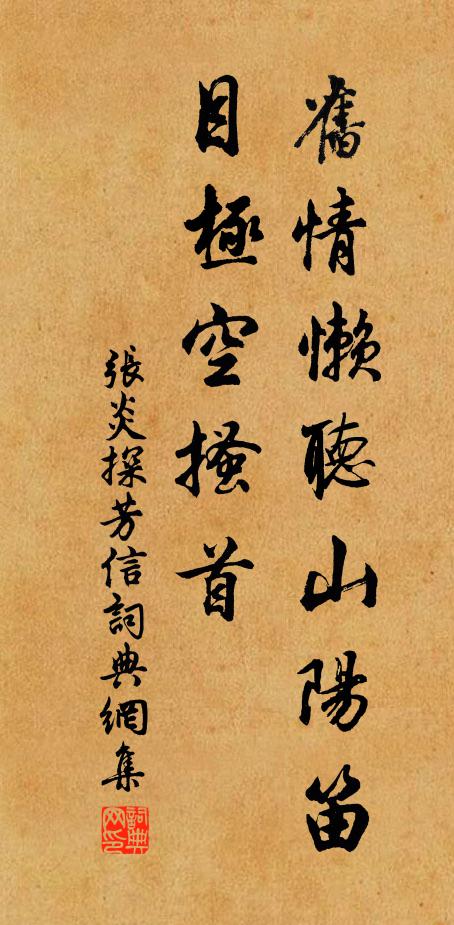 舊情懶聽山陽笛
目極空搔首
張炎探芳信詞典網集
詞典网印